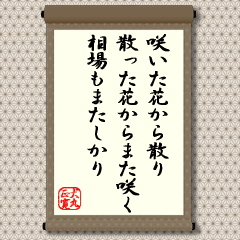 咲いた花から散り
散った花からまた咲く
相場もまたしかり
大丸
正富